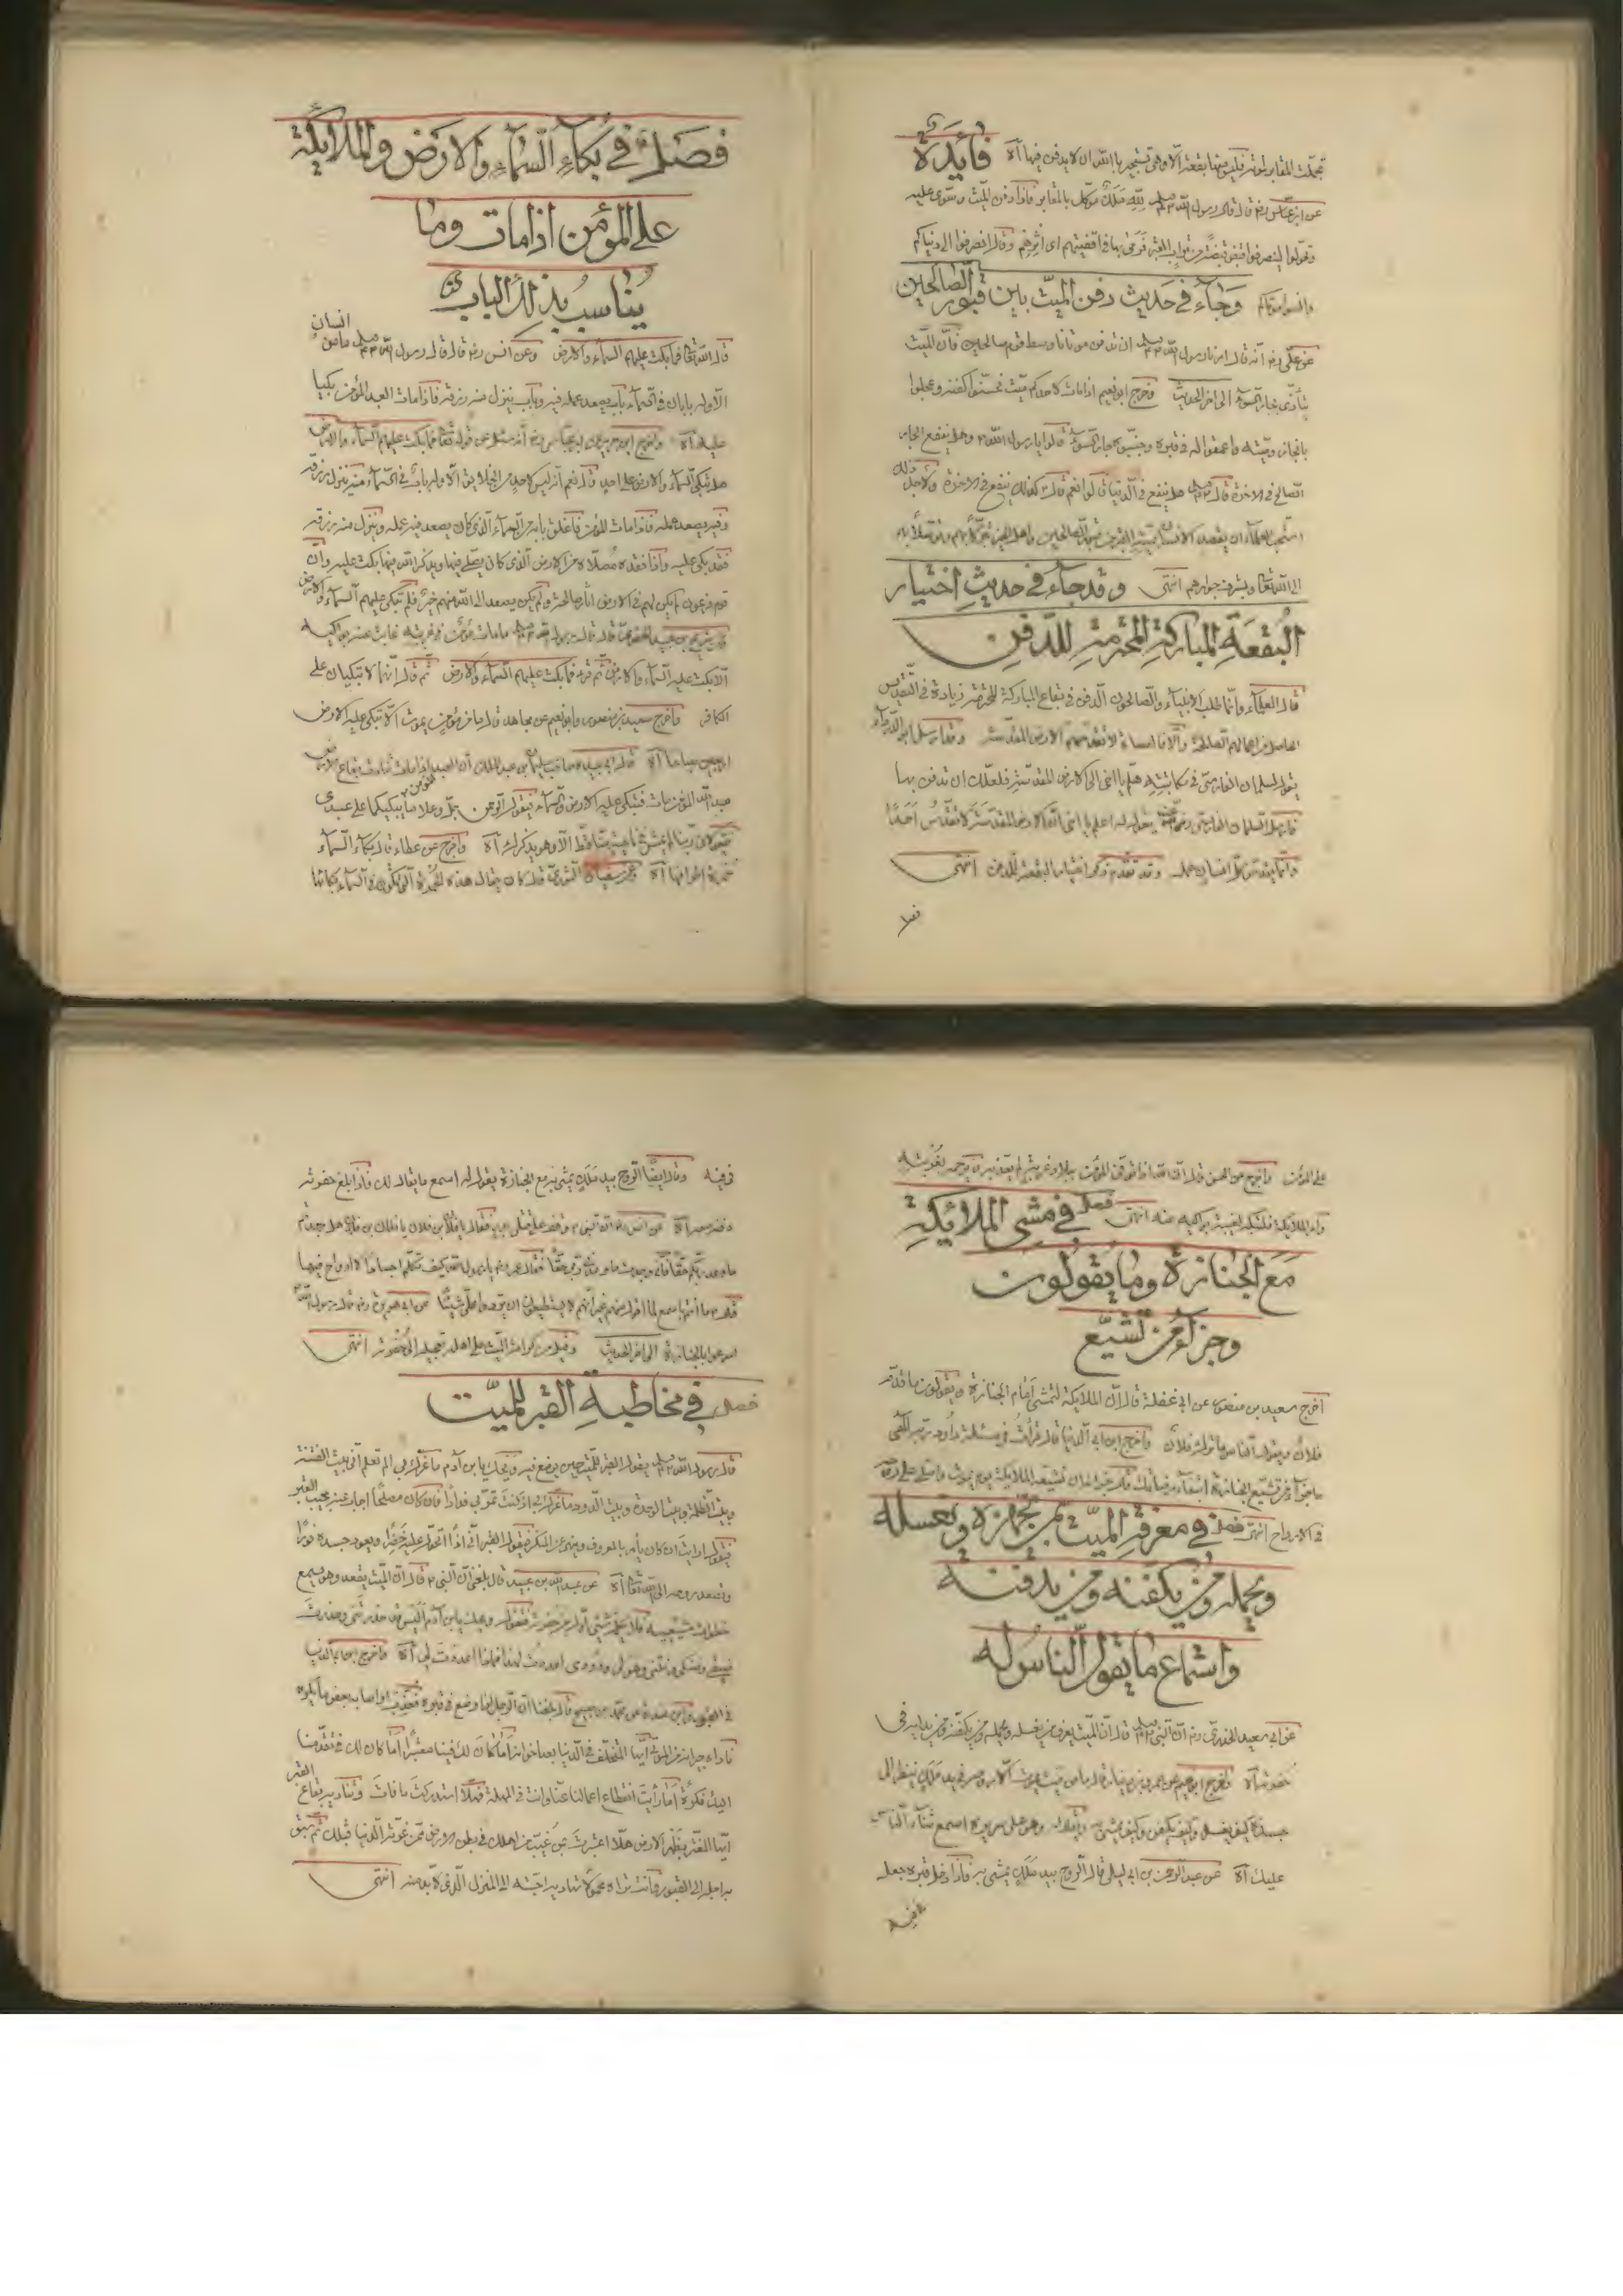 تجملت المقابر لموته فليس منها بقعة الا وهى تستجير بالله ان لا يدفن فيها آه فائدة
عن ابن عباس رضه قال قال رسول الله صلعم لله ملك موكل بالمقابر فاذا دفن الميت وسوى عليه
وتحولوا لينصرفوا قبض قبضة من تراب القبر فرمى بها فى اقفيتهم وقال انصرفوا الى دنياكم
وانسوا موتاكم وجاء فى حديث دفن الميت بين قبور الصالحين
عن على رضه انه قال امرنا رسول الله صلعم ان ندفن موتانا وسط قوم صالحين فان الميت
يتأذى بجار السوء الى اخر الحديث وخرج ابو نعيم اذا مات لاحدكم ميت فحسنوا كفنه وعجلوا
بانجاز وصيته واعمقوا له فى قبره وجنبوه جار السوء قالوا يا رسول الله وهل ينفع الجار
الصالح فى الاخرة قال هل ينفع فى الدنيا قالوا نعم قال كذلك ينفع فى الاخرة ولاجل ذلك
استحب العلماء ان يقصد الانسان بميته قبور الصالحين واهل الخير تبركا بهم وتوسلا به
الى الله تعالى وبشرف جوارهم انتهى وقد جاء فى حديث اختيار
البقعة المباركة المحترمة للدفن
قال العلماء وانما طلب الانبياء والصالحون الدفن فى بقاع المباركة المحترمة زيادة فى التقديس
الحاصل من اعمالهم الصالحة والا فاهل الاساءة لا تقدسهم الارض المقدسة وقد ارسل ابو الدرداء
يقول لسلمان الفارسى فى مكاتبته هلم يا اخى الى الارض المقدسة فلعلك ان تدفن بها
فارسل سلمان الفارسى رضه يقول له اعلم يا اخى ان الارض المقدسة لا تقدس احدا
وانما يقدس كل انسان عمله وقد تقدم ذكر اختيار البقعة للدفن انتهى
فصل
فصل فى بكاء السماء والارض والملايكة
على المؤمن اذا مات وما
يناسب بذلك الباب
قال الله تعالى فما بكت عليهم السماء والارض وعن انس رضه قال قال رسول الله صلعم ما من انسان
الا وله بابان فى السماء باب يصعد عمله فيه وباب ينزل منه رزقه فاذا مات العبد المؤمن بكيا
عليه آه واخرج ابن جرير عن ابن عباس رضه انه سئل عن قوله تعالى فما بكت عليهم السماء والارض
هل تبكى السماء والارض على احد قال نعم انه ليس لاحد من الخلايق الا وله باب فى السماء منه ينزل رزقه
وفيه يصعد عمله فاذا مات المؤمن فاغلق بابه من السماء الذى كان يصعد فيه عمله وينزل منه رزقه
فقد بكى عليه واذا فقده مصلاه من الارض التى كان يصلى فيها ويذكر الله فيها بكت عليه وان
قوم فرعون لم يكن لهم فى الارض اثار صالحة ولم يكن يصعد الى الله منهم خير فلم تبكى عليهم السماء والارض
عن شريح بن عبيد الحضرمى قال قال رسول الله صلعم ما مات مؤمن فى غربته غابت عنه بواكيه
الا بكت عليه السماء والارض ثم قرء فما بكت عليهم السماء والارض ثم قال انهما لا تبكيان على
الكافر واخرج سعيد بن منصور وابو نعيم عن مجاهد قال ما من مؤمن يموت الا تبكى عليه الارض
اربعين صباحا آه قال ابو عبيدة صاحب سليمان بن عبد الملك ان العبد المؤمن اذا مات تنادت بقاع الارض
عبد الله المؤمن مات فتبكى عليه الارض والسماء فيقول الرحمن جل وعلا ما يبكيكما على عبدى
فيقولان ربنا لم يمش فى ناحية منا قط الا وهو يذكرك آه واخرج عن عطاء قال بكاء السماء
حمرة اطرافها آه وعن سفيان الثورى قال كان يقال هذه الحمرة التى تكون فى السماء بكائها
على المؤمن واخرج عن الحسن قال ان الله اذا توفى المؤمن ببلاد غربة لم يعذبه رحمة لغربته
وامر الملايكة فبكته لغيبة بواكيه عنه انتهى فصل فى مشى الملائكة
مع الجنازة وما يقولون
وجزاء من تشيع
اخرج سعيد بن منصور عن ابى غفلة قال ان الملايكة لتمشى امام الجنازة ويقولون ما قدم
فلان ويقول الناس ما ترك فلان واخرج ابن ابى الدنيا قال قرأت فى مسئلة داود ربه الهى
ما جزاء من تشيع الجنازة ابتغاء مرضاتك قال جزاءه ان تشيعه الملايكة يوم يموت واصلى على روحه
فى الارواح انتهى فصل فى معرفة الميت بمن تجهزه وتغسله
وتحمله ومن يكفنه ومن يدفنه
واستماع ما يقول الناس له
عن ابى سعيد الخدرى رضه ان النبى صلعم قال ان الميت يعرف من يغسله ويحمله ومن يكفنه ومن يدليه فى
حفرته آه واخرج ابو نعيم عن عمرو بن دينار قال ما من ميت يموت الا روحه فى يد ملك ينظر الى
جسده كيف يغسل وكيف يكفن وكيف يمشى به ويقال له وهو على سريره اسمع ثناء الناس
عليك آه عن عبد الرحمن بن ابى ليلى قال الروح بيد ملك يمشى به فاذا دخل قبره جعله
فيه
فى فيه وقال ايضا الروح بيد ملك يمشى به مع الجنازة يقول له اسمع ما يقال لك فاذا بلغ حفرته
دفنه معه آه عن انس رضه ان النبى وقف على قتلى بدر فقال يا فلان بن فلان يا فلان بن فلان هل وجدتم
ما وعد ربكم حقا فانى وجدت ما وعدنى ربى حقا فقال عمر رضه يا رسول الله كيف تكلم اجسادا لا ارواح فيها
قال ما انتم باسمع لما اقول منهم غير انهم لا يستطيعون ان يردوا على شيئا عن ابى هريرة رضه قال قال رسول الله
اسرعوا بالجنازة الى اخر الحديث وقيل من كرامة الميت على اهله تعجيله الى حفرته انتهى
فصل فى مخاطبة القبر للميت
قال رسول الله صلعم يقول القبر للميت حين يوضع فيه ويحك يا بن آدم ما غرك بى الم تعلم انى بيت الفتنة
وبيت الظلمة وبيت الوحدة وبيت الدود ما غرك بى اذ كنت تمر بى فدادا فان كان مصلحا اجاب عنه مجيب القبر
فيقول ارايت ان كان يأمر بالمعروف وينهى عن المنكر فيقول القبر انى اذا اتحول عليه خضرا ويعود جسده نورا
وتصعد روحه الى الله تعالى آه عن عبد الله بن عبيد قال بلغنى ان النبى قال ان الميت يقعد وهو يسمع
خطوات مشيعيه فلا يكلمه شئ اول من حفرته فتقول ويحك يا بن آدم اليس قد حذرتنى وحذرت
ضيقى ونتنى وهولى ودودى اعددت لهذا فماذا اعددت لى آه واخرج ابن ابى الدنيا
فى القبور وابن منده عن محمد بن صبيح قال بلغنا ان الرجل اذا وضع فى قبره فعذب او اصابه بعض ما يكره
ناداه جيرانه من الموتى ايها المتخلف فى الدنيا بعد اخوانه اما كان لك فينا معتبر اما كان لك فى تقدمنا
اياك فكرة اما رأيت انقطاع اعمالنا عنا وانت فى المهلة فهلا استدركت ما فات وتناديه بقاع القبر
ايها المغتر بظهر الارض هلا اعتبرت بمن غيب من اهلك فى بطن الارض ممن غرته الدنيا قبلك ثم سبق
به اجله الى القبور وانت تراه محمولا تهاديه احبته الى المنزل الذى لا بد منه انتهى